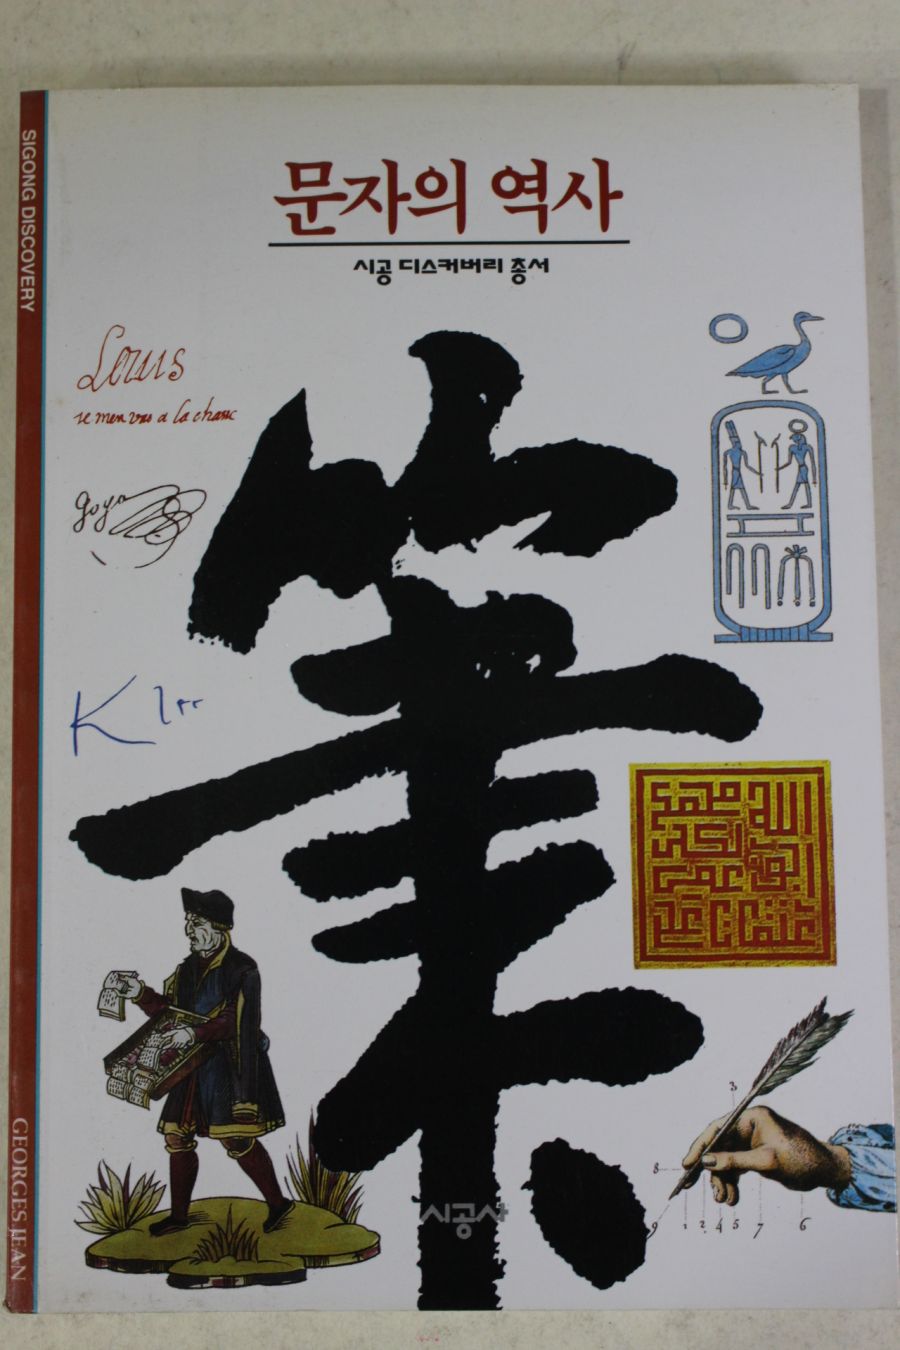 문자의 역사
시공 디스커버리 총서
SIGONG DISCOVERY
Louis
goya
3
8
9 1 2 4 5 7 6
시공사
GEORGES JEAN